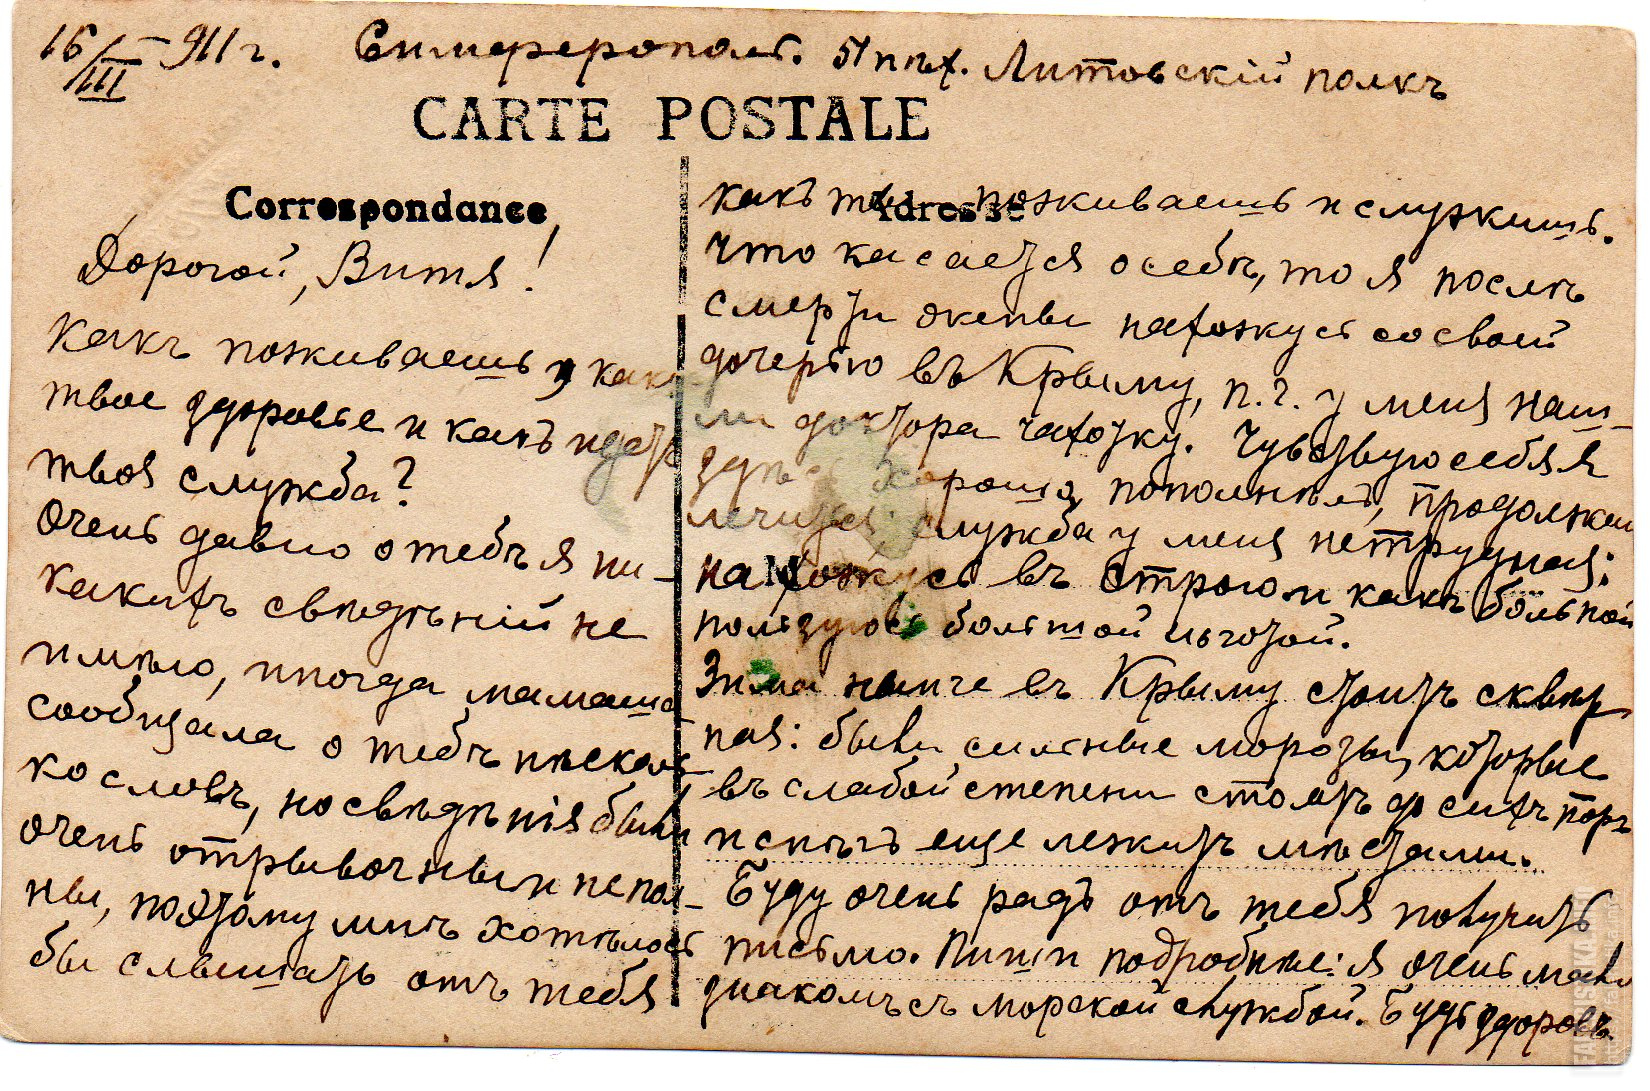 16/III 911 г. Симферополь. 51 пѣх. Литовскій полкъ
CARTE POSTALE
Correspondance
Дорогой, Витя!
Какъ поживаешь и какъ
твое здоровье и какъ идетъ
твоя служба?
Очень давно о тебѣ я ни-
какихъ свѣдѣній не
имѣю, иногда мамаша
сообщала о тебѣ нѣсколь-
ко словъ, но свѣдѣнія были
очень отрывочны и непол-
ны, поэтому мнѣ хотѣлось
бы слышать отъ тебя
Adresse
какъ ты поживаешь и служишь.
Что касается о себѣ, то я послѣ
смерти жены нахожусь со своей
дочерью въ Крыму, п.ч. у меня наш-
ли доктора чахотку. Чувствую себя я
здѣсь хорошо, пополнѣлъ, продолжаю
лечиться; служба у меня нетрудная:
M
нахожусь въ строю и какъ больной
пользуюсь большой льготой.
Зима нынче въ Крыму стоитъ сквер
ная: были сильные морозы, которые
въ слабой степени стоятъ до сихъ поръ
и снѣгъ еще лежитъ мѣстами.
Буду очень радъ отъ тебя получить
письмо. Пиши подробнѣе: я очень мало
знакомъ съ морской службой. Будь здоровъ.